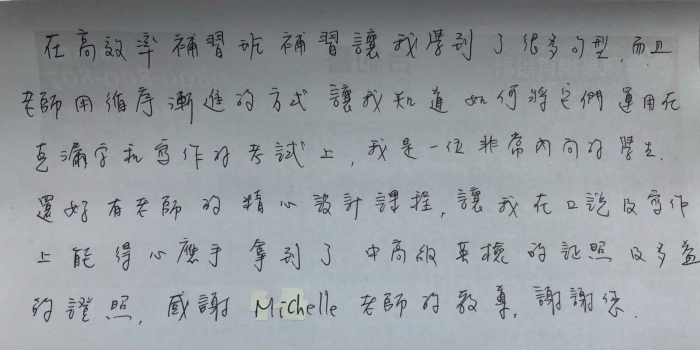 在高效率補習班補習讓我學到了很多句型,而且
老師用循序漸進的方式讓我知道如何將它們運用在
克漏字和寫作的考試上,我是一位非常內向的學生.
還好有老師的精心設計課程,讓我在口說及寫作
上能得心應手拿到了中高級英檢的証照及多益
的證照.感謝Michelle老師的教導.謝謝您.